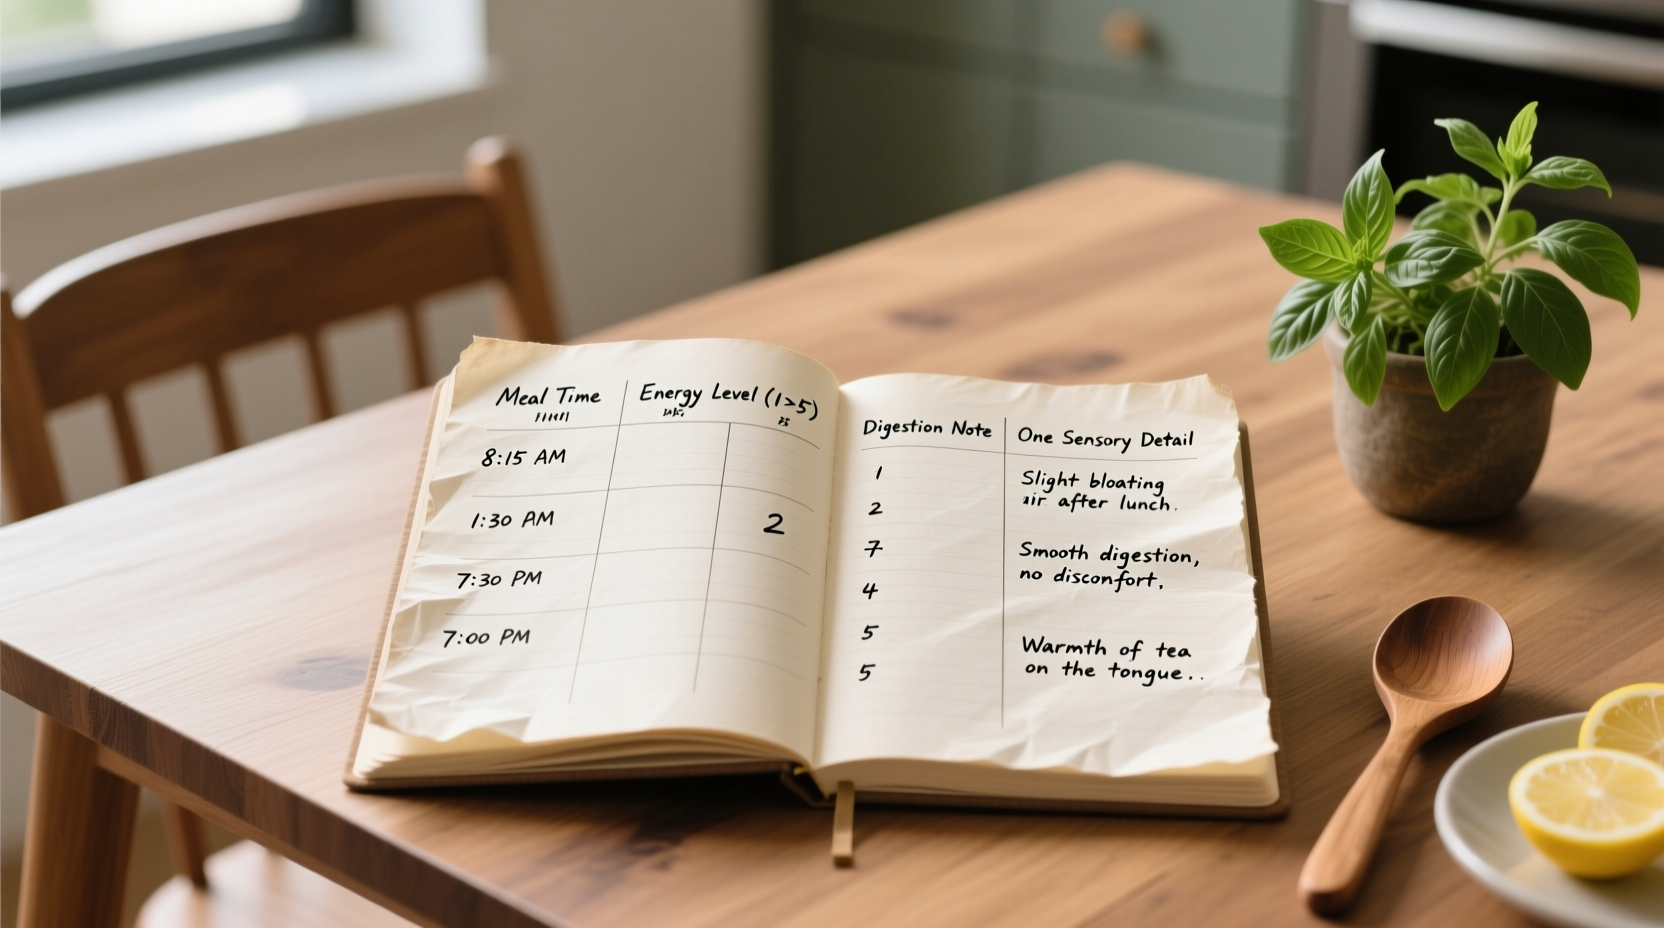 Meal Time
Energy Level (1>5)
8:15 AM
1:30 AM
2
7:30 PM
7:00 PM
Digestion Note
One Sensory Detail
1
2
7
4
5
5
Slight bloating
after lunch.
Smooth digestion,
no disconfort.
Warmth of tea
on the tongue..